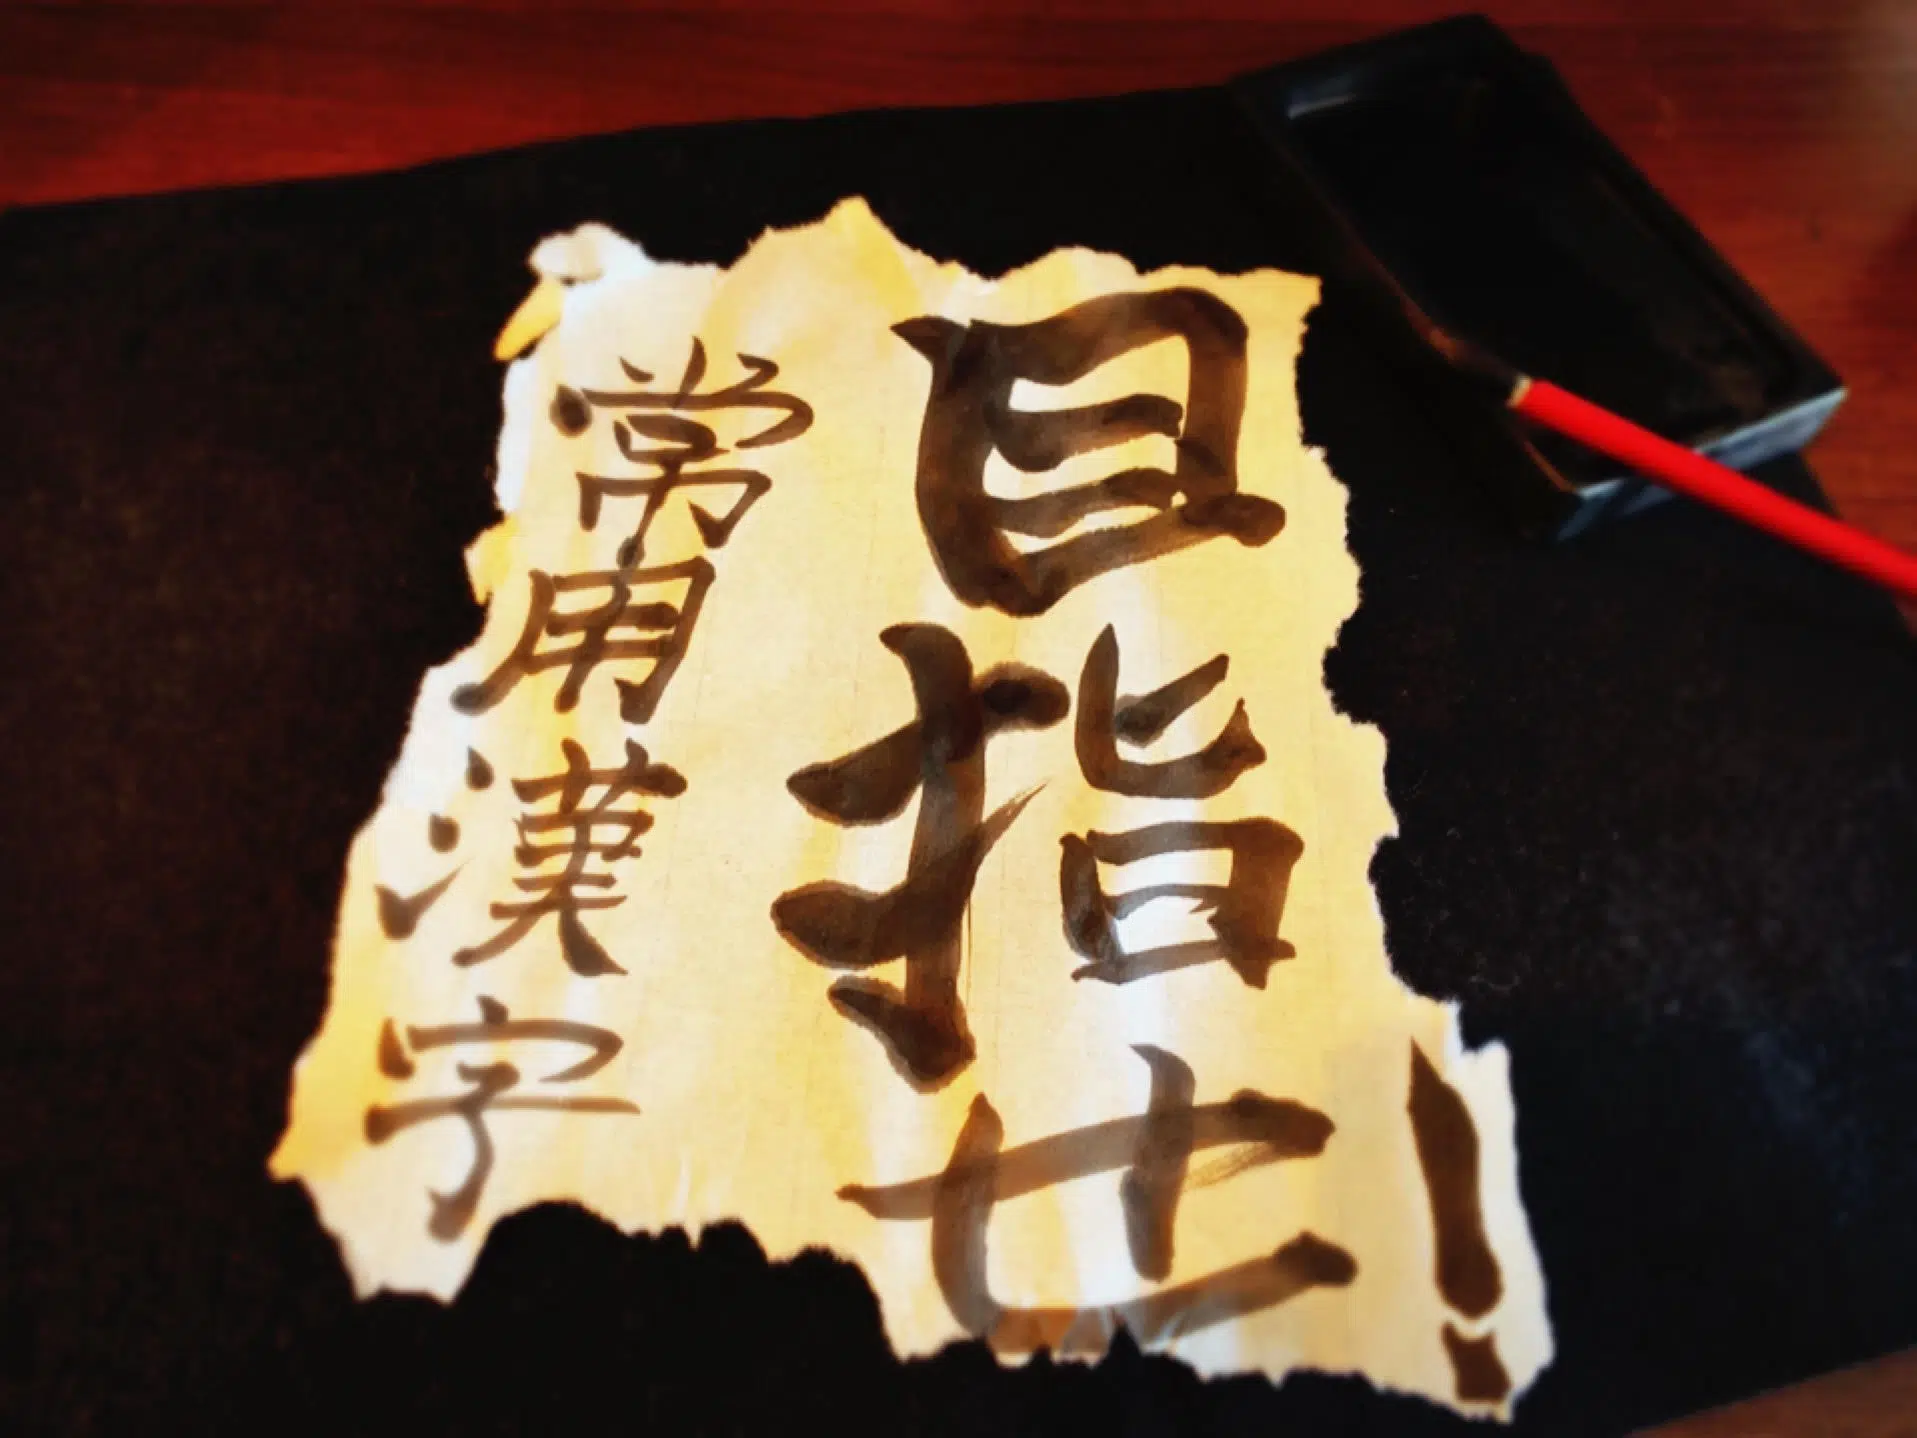 目指せ!
常用漢字